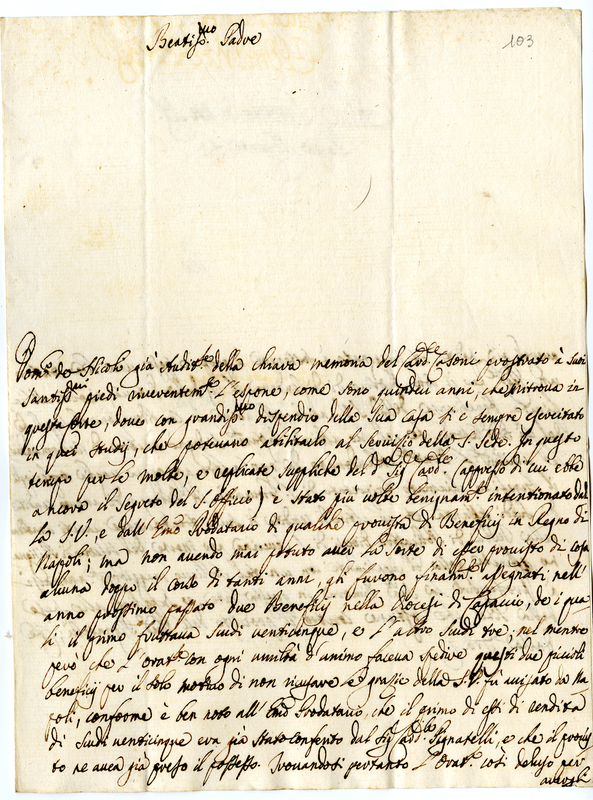 Beatiss.mo Padre
103
Dom.co de Nicola già Audit.re della chiara memoria del Card.le Casoni prostrato à suoi
Santiss.mi piedi riverentem.te l'espone, come sono quindici anni, che si ritrova in
questa Corte, dove con grandiss.mo dispendio della sua casa si è sempre esercitato
in quei studij, che potevano abilitarlo al servissio della S. Sede. In questo
tempo per le molte, e replicate suppliche del d.o Sig.r Card.le (appresso di cui ebbe
ancora il segreto del S. Officio) è stato più volte benignam.te intentionato dal
la S.V., e dall' Em.o Prodatario di qualche provista di Beneficij in Regno di
Napoli; ma non avendo mai potuto aver la sorte di esser provisto di cosa
alcuna doppo il corso di tanti anni, gli furono finalm.te assegnati nell'
anno prossimo passato due Beneficij nella Diocesi di Capaccio, de i qua
li il primo fruttava scudi venticinque, e l'altro scudi tre; nel mentre
però che l'Orat.re con ogni umiltà d'animo faceva spedire questi due piccioli
beneficij per il solo motivo di non ricusare le grazie della S.V. fù avisato in Na
poli, conforme è ben noto all' Em.o Prodatario, che il primo di essi di rendita
di scudi venticinque era già stato conferito dal Sig.r Card.le Pignatelli, e che il provis
to ne avea già preso il possesso. Trovandosi pertanto l'Orat.re così deluso per
avergli